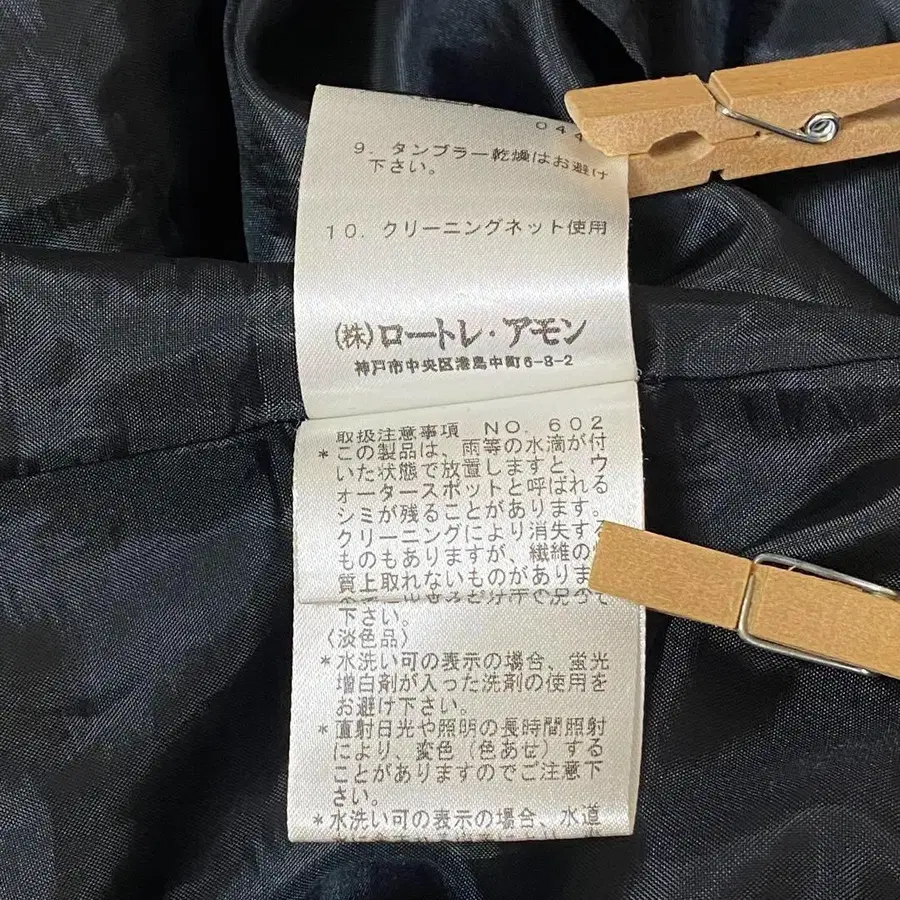 044
9. タンブラー乾燥はお避け
下さい。
10. クリーニングネット使用
(株)ロートレ・アモン
神戸市中央区港島中町6-8-2
取扱注意事項 NO. 602
*この製品は、雨等の水滴が付
いた状態で放置しますと、ウ
ォータースポットと呼ばれる
シミが残ることがあります。
クリーニングにより消失する
ものもありますが、繊維の
質上取れないものがありま
下さい。
〈淡色品〉
*水洗い可の表示の場合、蛍光
増白剤が入った洗剤の使用を
お避け下さい。
*直射日光や照明の長時間照射
により、変色(色あせ)する
ことがありますのでご注意下
さい。
*水洗い可の表示の場合、水道